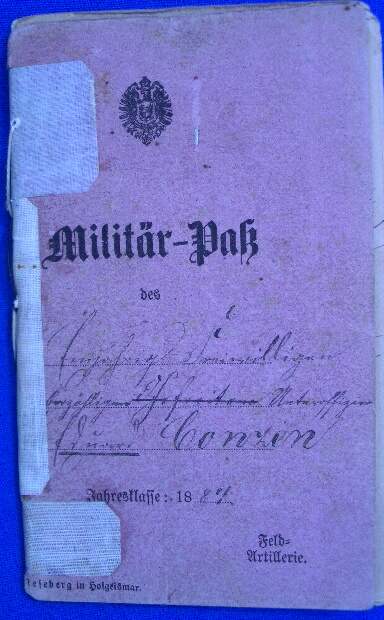 Militär-Paß
des
Einjährig Freiwilligen
überzähligen Gefreiten Unteroffizier
Eduard
Jahresklasse: 18
Feld-
Artillerie.
eseberg in Hofgeismar.